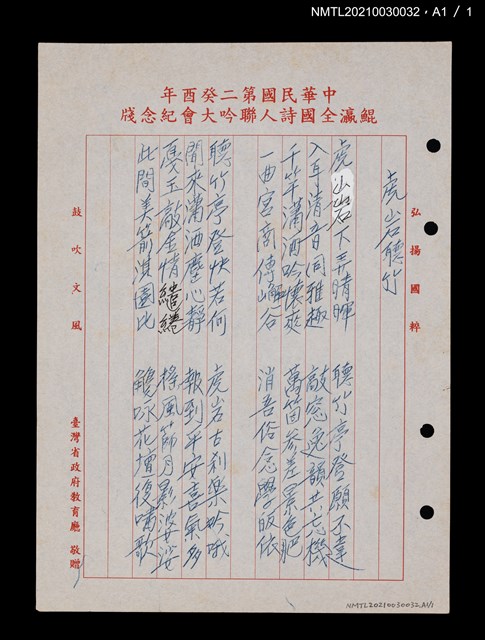 NMTL20210030032，A1 / 1
中華民國第二癸酉年
鯤瀛全國詩人聯吟大會紀念牋
弘揚國粹
虎岩聽竹
虎山岩下弄晴暉 聽竹亭登願不違
入耳清音同雅趣 敲窓逸韻共忘機
千竿瀟洒吟懷爽 萬箇參差景色肥
一曲宮商傳嶰谷 消吾俗念學皈依
聽竹亭登快若何 虎岩古刹樂吟哦
閒來瀟洒塵心靜 報到平安喜氣多
戞玉敲金情繾綣 搖風篩月影婆娑
此間美箭淇園比 觴咏花壇復嘯歌
鼓吹文風
臺灣省政府教育廳 敬贈
NMTL20210030032.A1/1